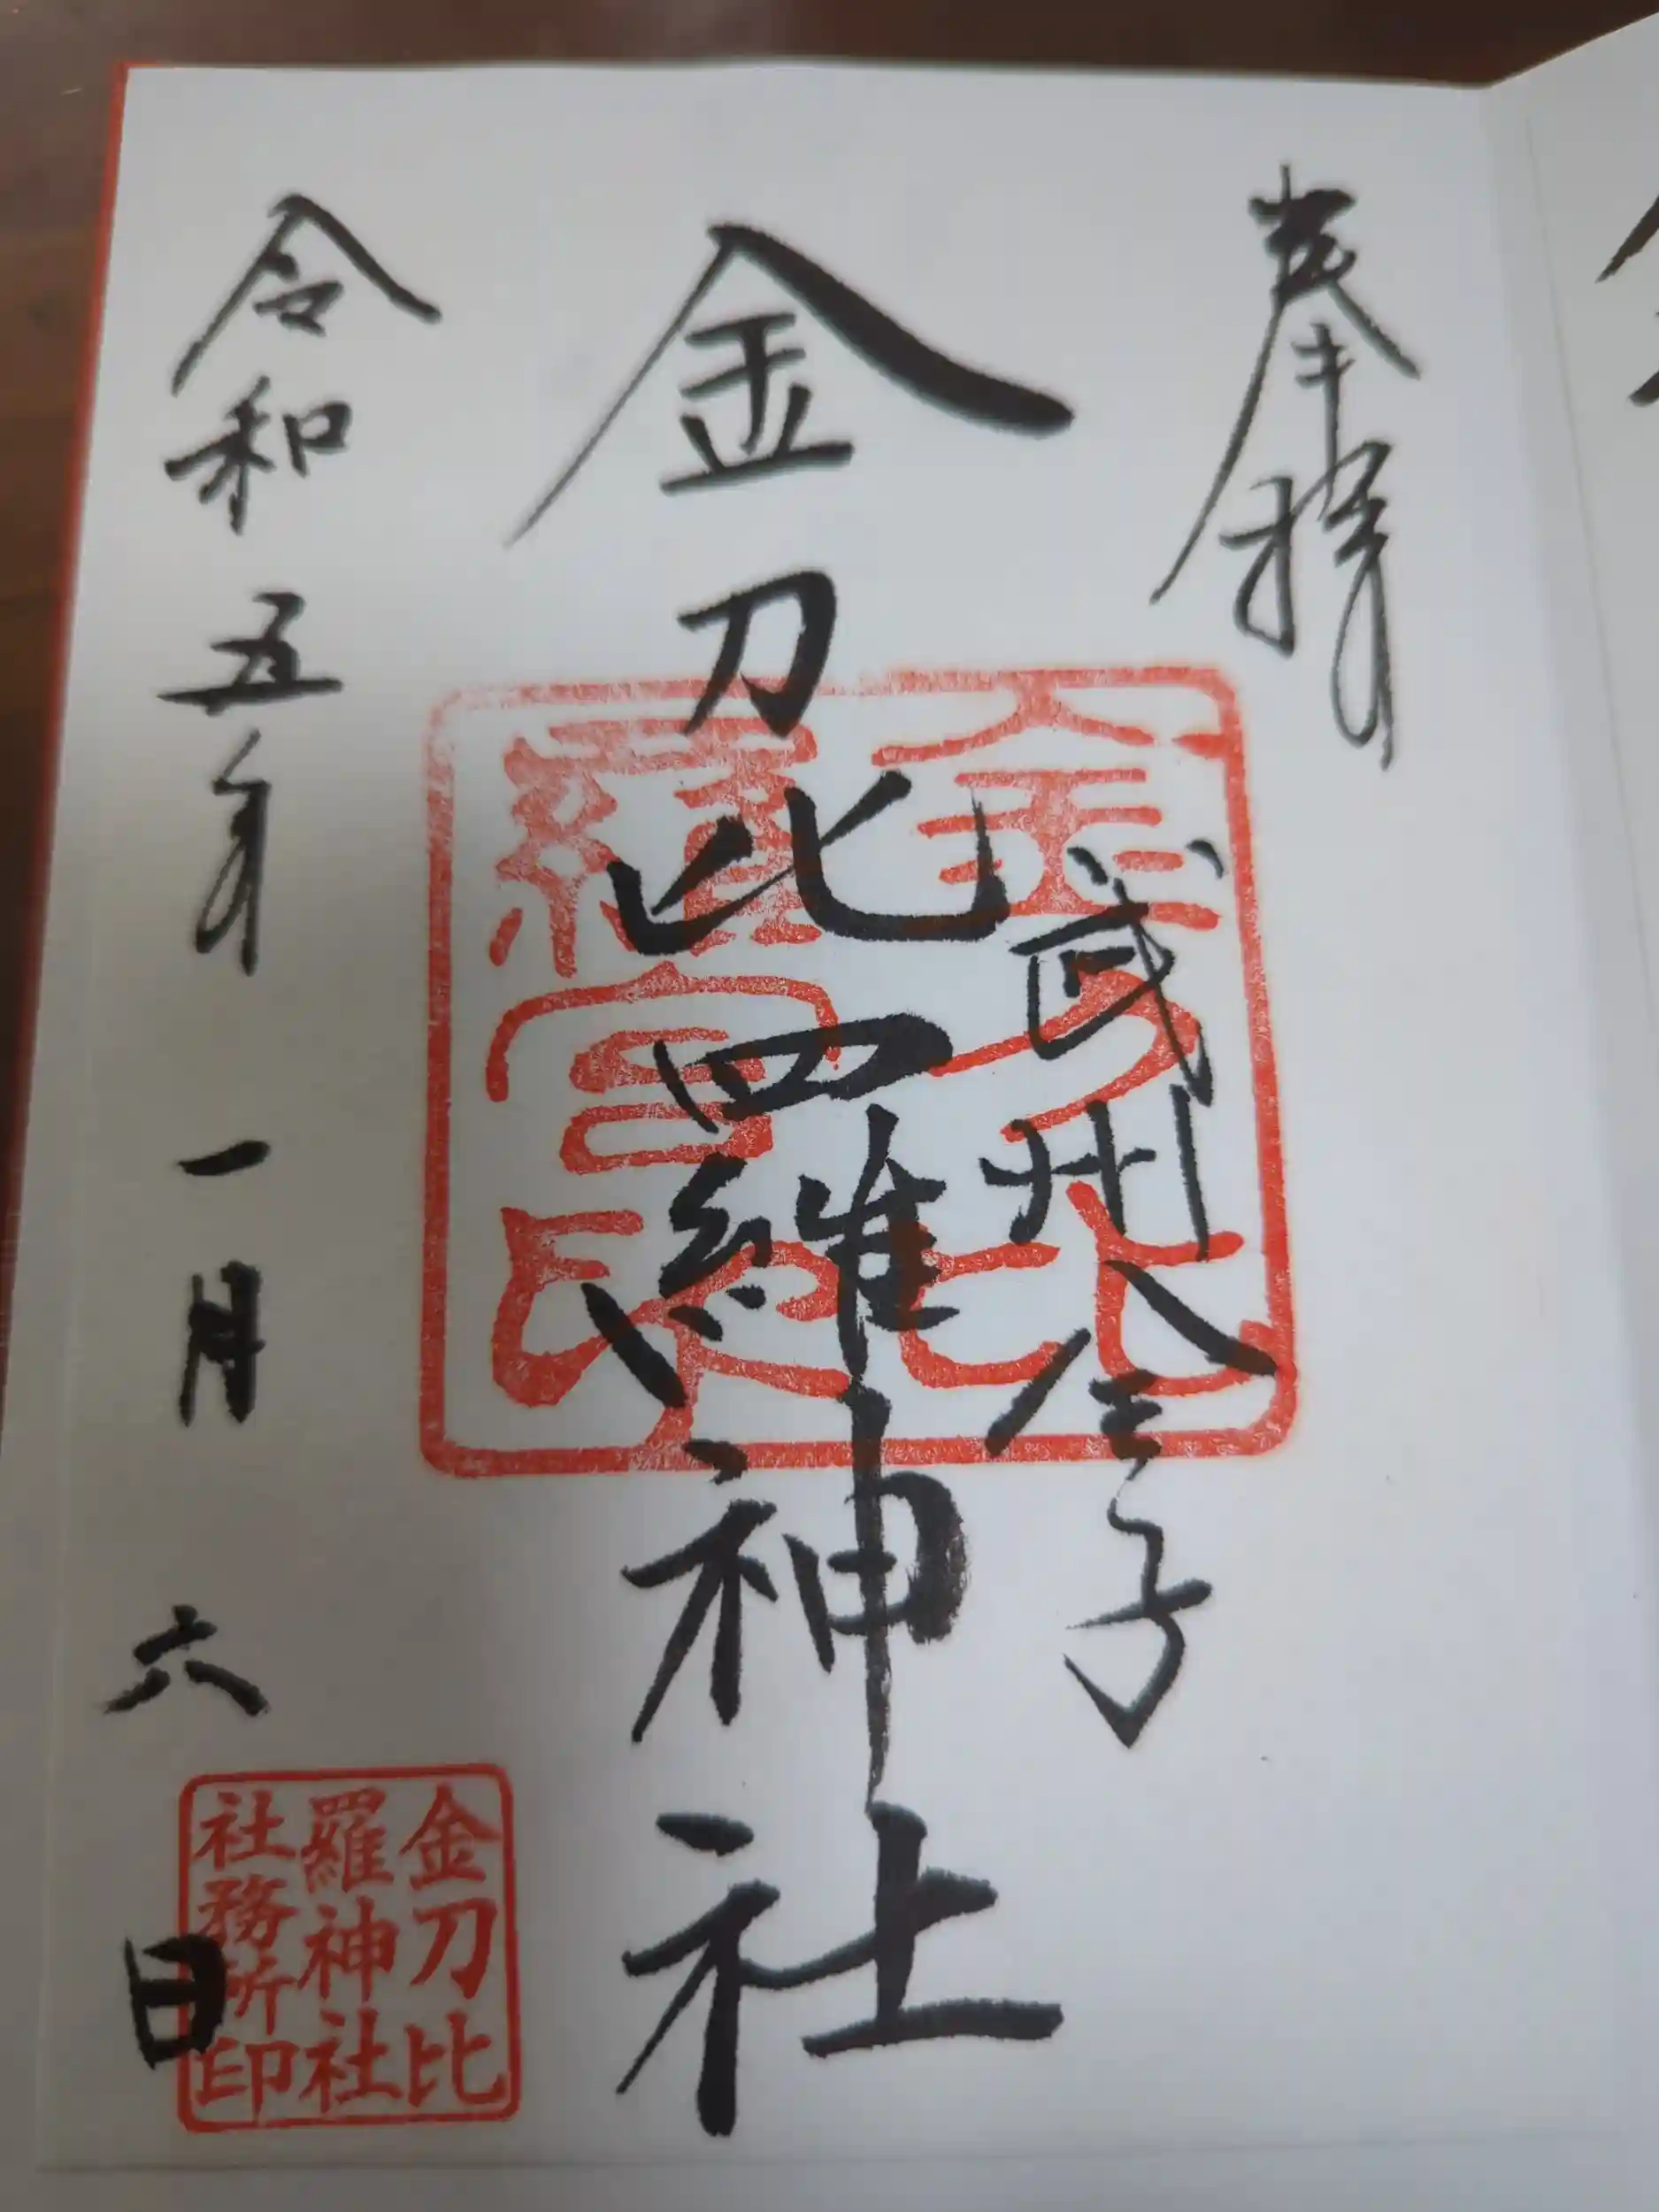 奉拝
武州金子
金刀比羅神社
令和五年一月六日
金刀比
羅宮印
金刀比
羅神社
社務所印